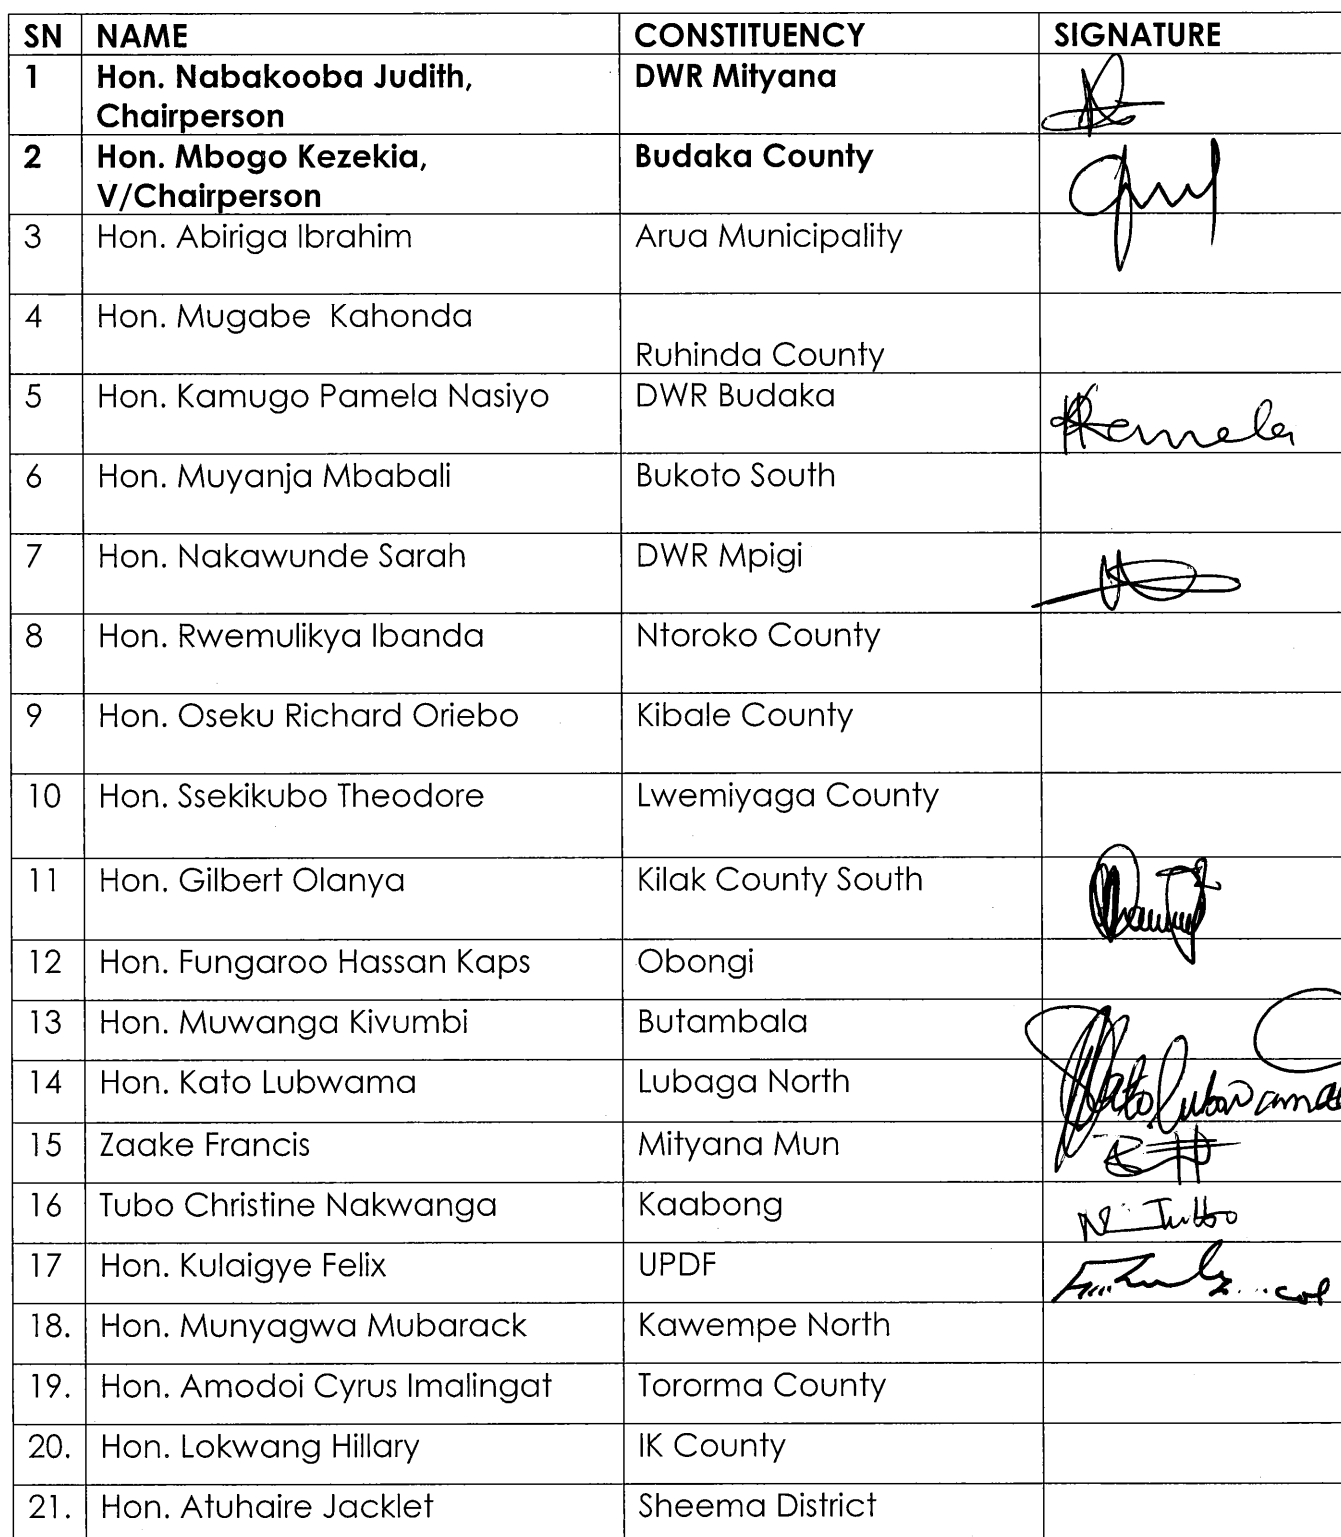 SN NAME CONSTITUENCY SIGNATURE
1 Hon. Nabakooba Judith, DWR Mityana
Chairperson
2 Hon. Mbogo Kezekia, Budaka County
V/Chairperson
3 Hon. Abiriga Ibrahim Arua Municipality
4 Hon. Mugabe Kahonda
Ruhinda County
5 Hon. Kamugo Pamela Nasiyo DWR Budaka
6 Hon. Muyanja Mbabali Bukoto South
7 Hon. Nakawunde Sarah DWR Mpigi
8 Hon. Rwemulikya Ibanda Ntoroko County
9 Hon. Oseku Richard Oriebo Kibale County
10 Hon. Ssekikubo Theodore Lwemiyaga County
11 Hon. Gilbert Olanya Kilak County South
12 Hon. Fungaroo Hassan Kaps Obongi
13 Hon. Muwanga Kivumbi Butambala
14 Hon. Kato Lubwama Lubaga North Kato Lubwama
15 Zaake Francis Mityana Mun
16 Tubo Christine Nakwanga Kaabong
17 Hon. Kulaigye Felix UPDF
18. Hon. Munyagwa Mubarack Kawempe North
19. Hon. Amodoi Cyrus Imalingat Tororma County
20. Hon. Lokwang Hillary IK County
21. Hon. Atuhaire Jacklet Sheema District